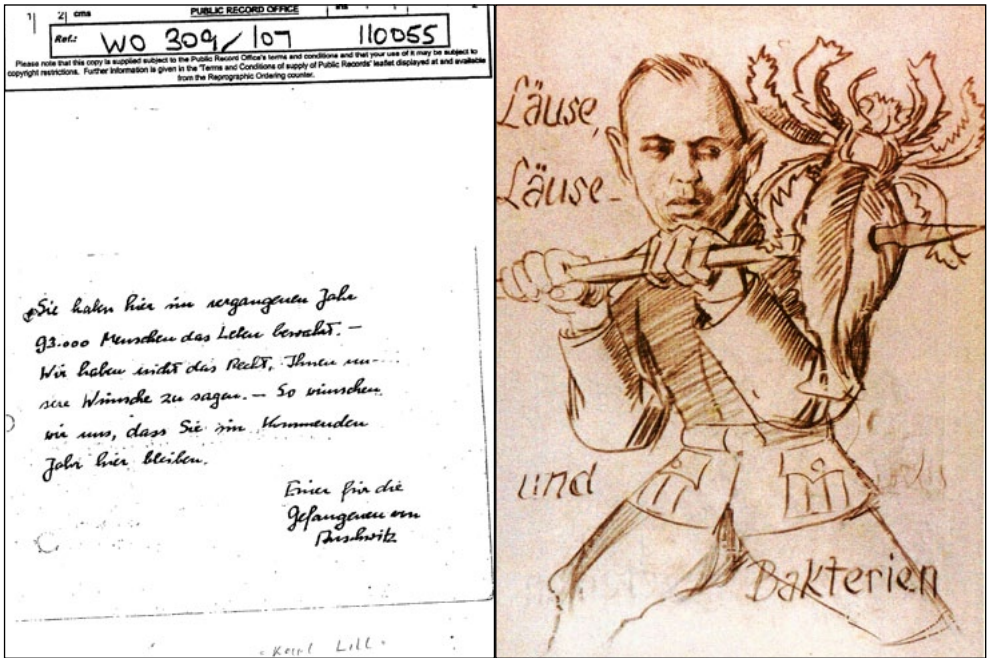 1| 2| cms
PUBLIC RECORD OFFICE
ins
Ref.:
WO 309/107
110055
Please note that this copy is supplied subject to the Public Record Office's terms and conditions and that your use of it may be subject to
copyright restrictions. Further information is given in the 'Terms and Conditions of supply of Public Records' leaflet displayed at and available
from the Reprographic Ordering counter.
Sie haben hier im vergangenen Jahr
93.000 Menschen das Leben bewahrt. –
Wir haben nicht das Recht, Ihnen un-
sere Wünsche zu sagen. – So wünschen
wir uns, dass Sie im kommenden
Jahr hier bleiben.
Einer für die
Gefangenen von
Auschwitz
Karl Lill.
Läuse,
Läuse-
und
Bakterien